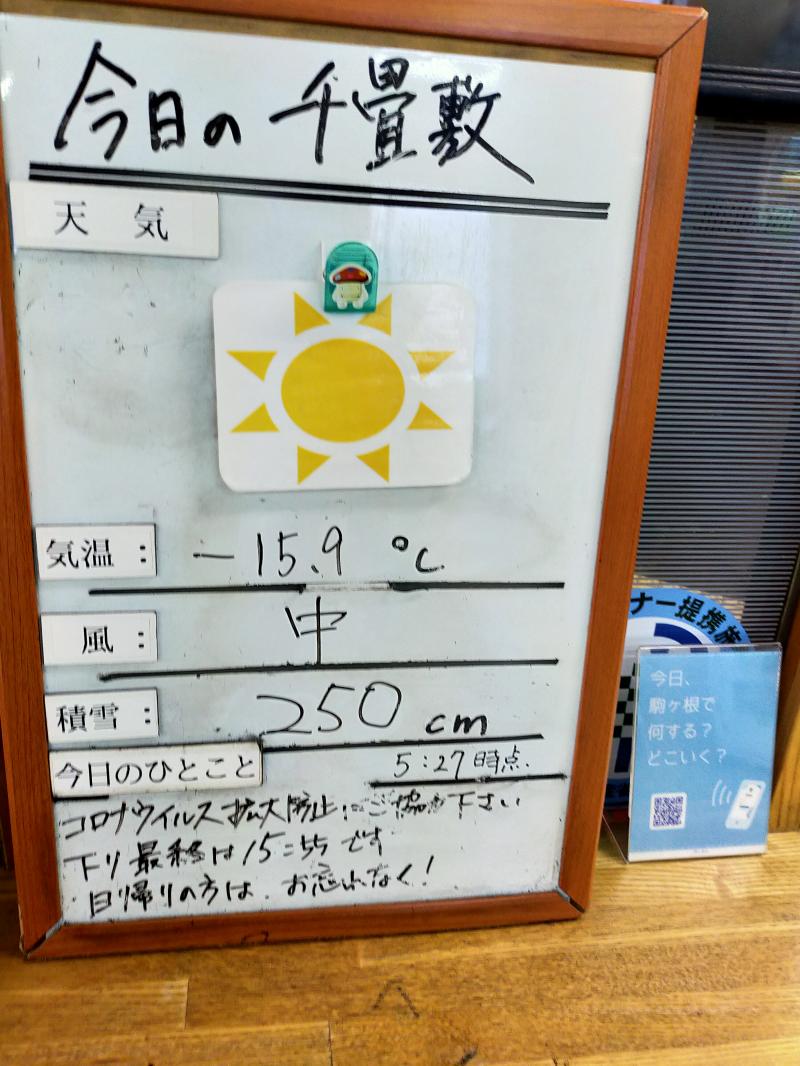 今日の千畳敷
天 気
気温: -15.9 ℃
風 : 中
積雪: 250 cm
今日のひとこと 5:27時点.
コロナウイルス拡大防止にご協力下さい
下り最終は15:55です
日帰りの方は、お忘れなく!
ナー提携施
今日、
駒ヶ根で
何する?
どこいく?